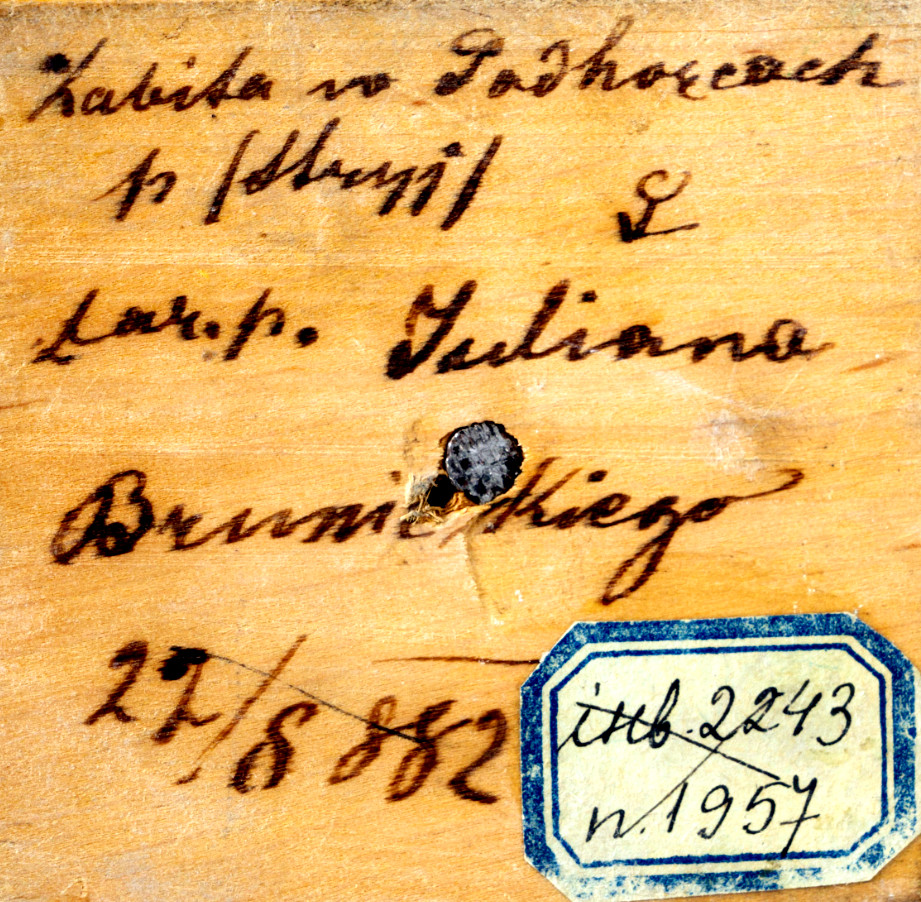 Zabita w Podhorcach
p /Stryj/
L
dar. p. Juliana
Brunickiego
22/8 882
inb. 2243
n. 1957